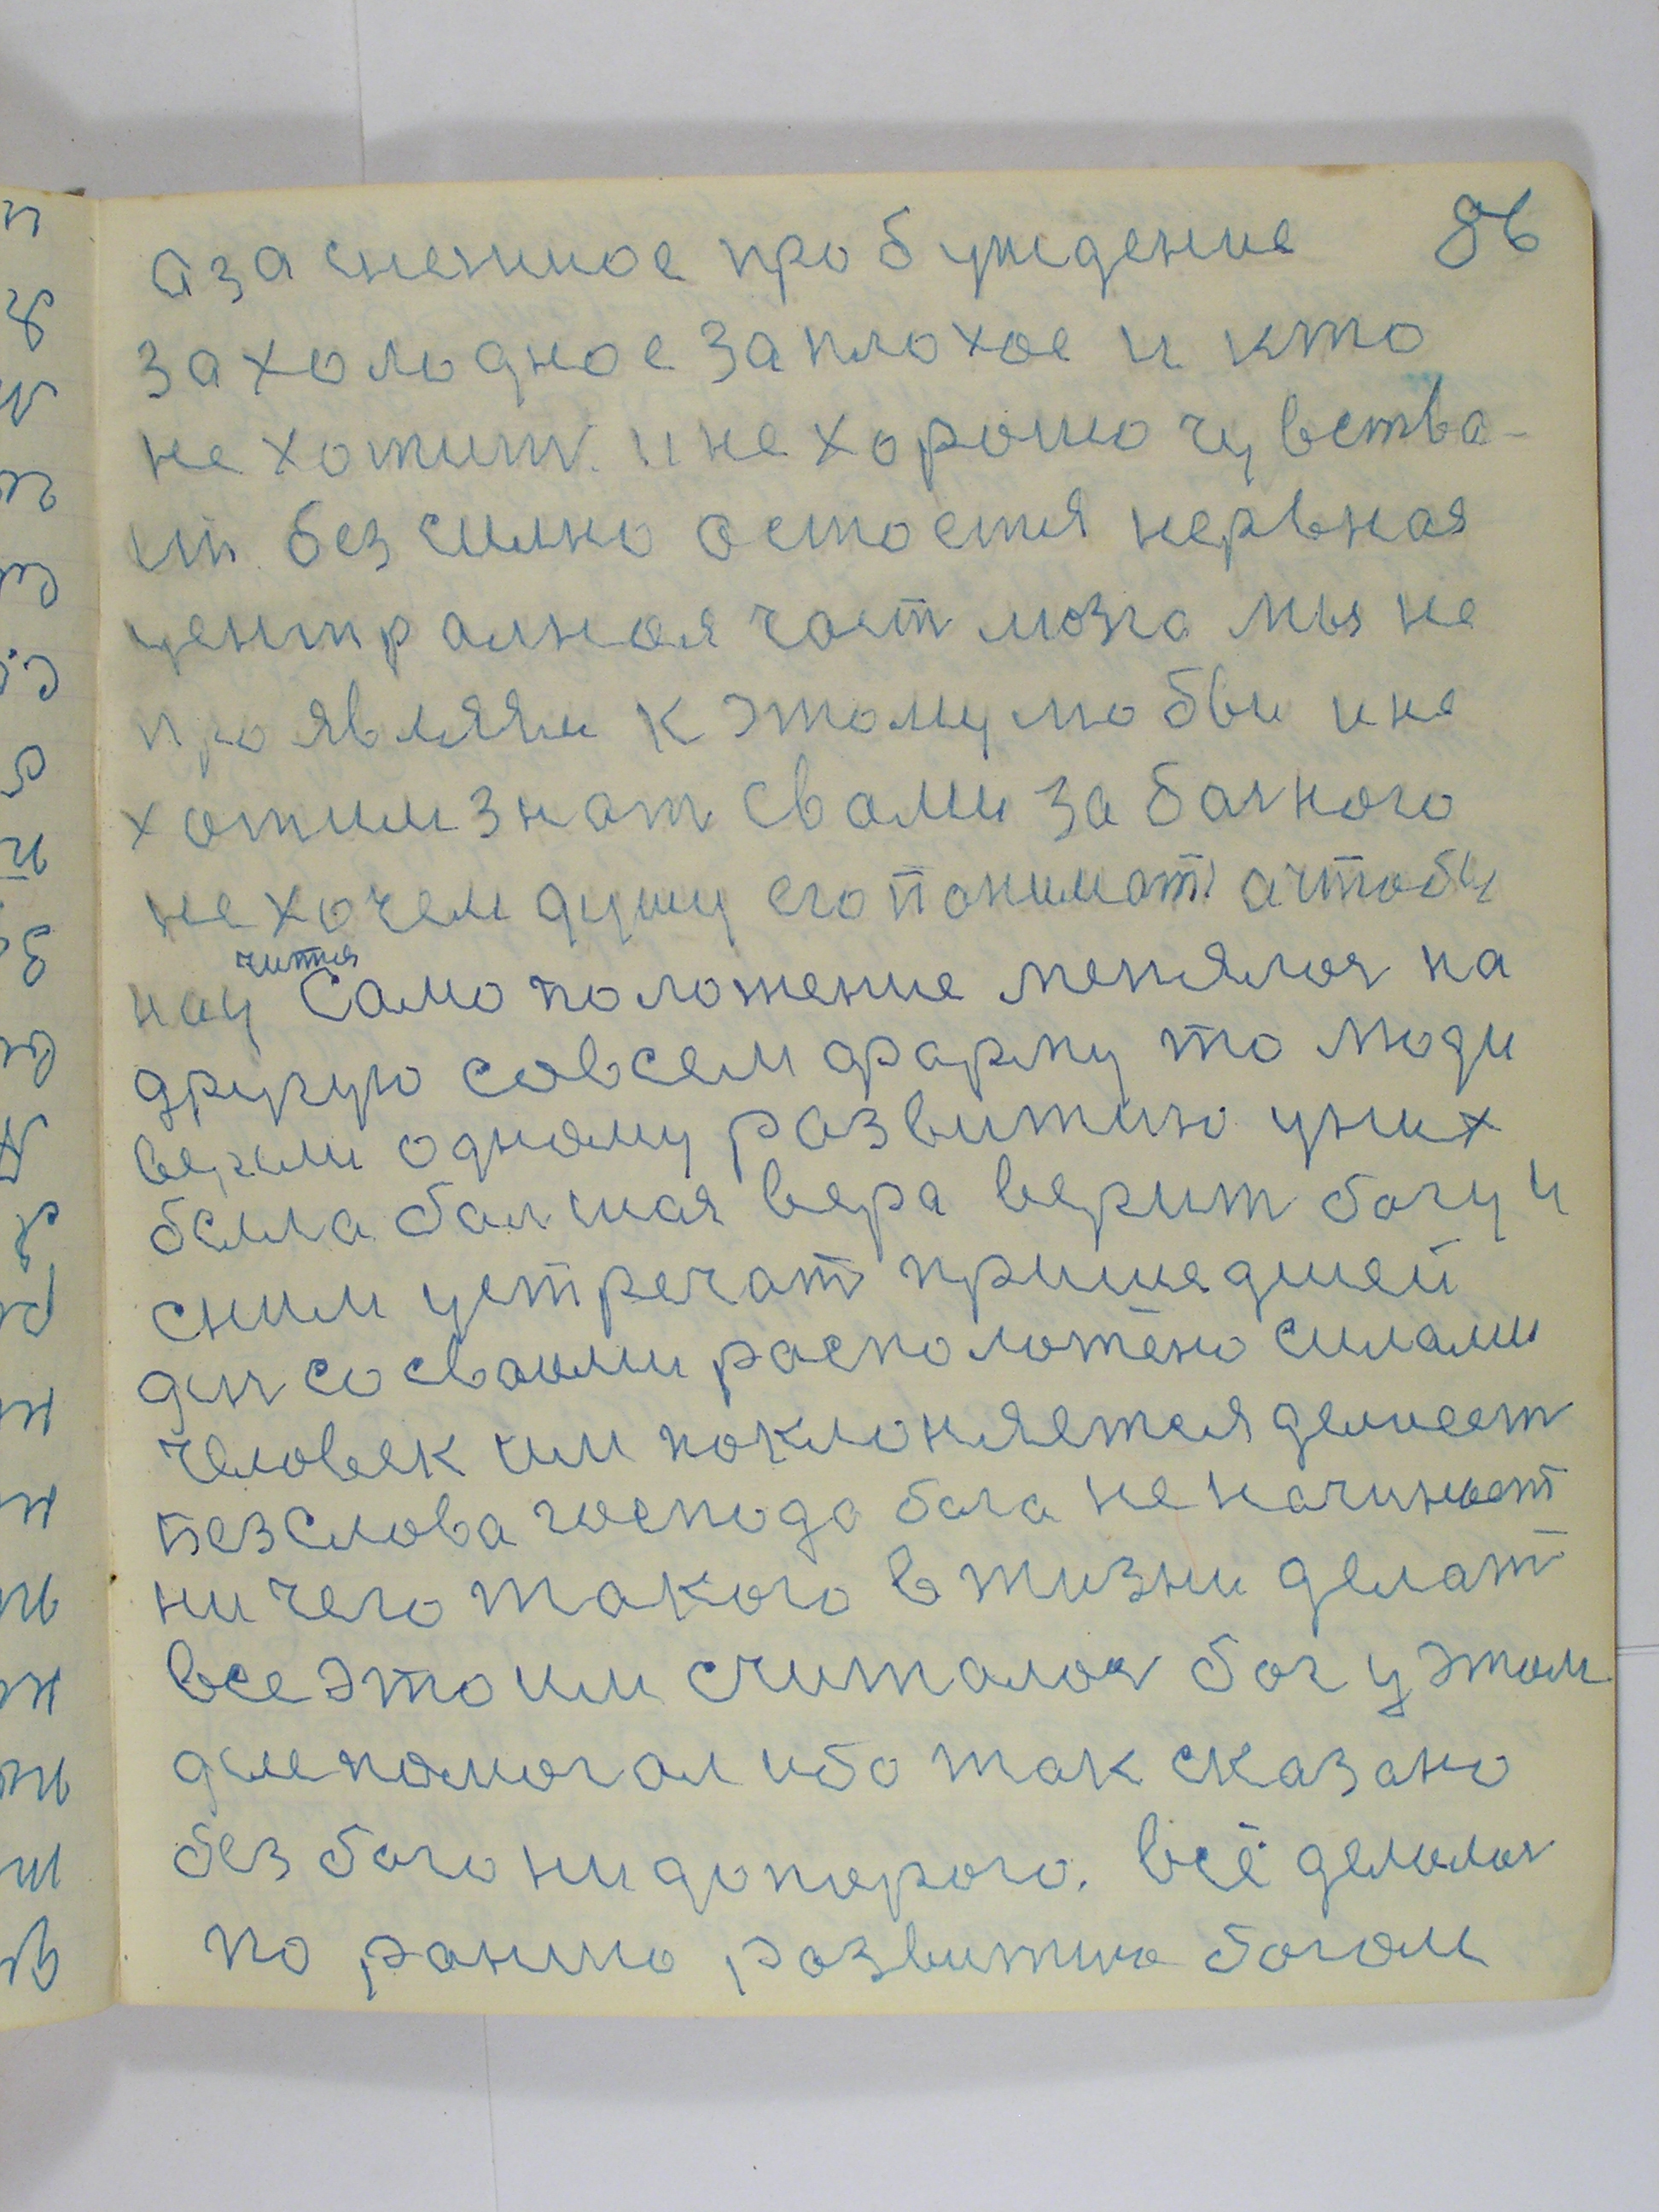 86
а за снежное пробуждение
за холодное за плохое и кто
не хотит и не хорошо чувства-
ит. без силно остоется нервная
централная част мозга мы не
проявляли к этому любви и не
хотим знат свами за бачного
не хочем душу его понимат ачтобы
научится само положение менялос на
другую совсем фарму то люди
верили одному развитию у них
была балшая вера верит богу и
сним устречат пришедшей
ден со своими расположено силами
человек им поклоняется делает
без слова господа бога не начинает
ни чего такого в жизни делат
все это им считалос бог у этом
деле помогал ибо так сказано
без бога ни до порога. всё делалос
по раншо развитию богам